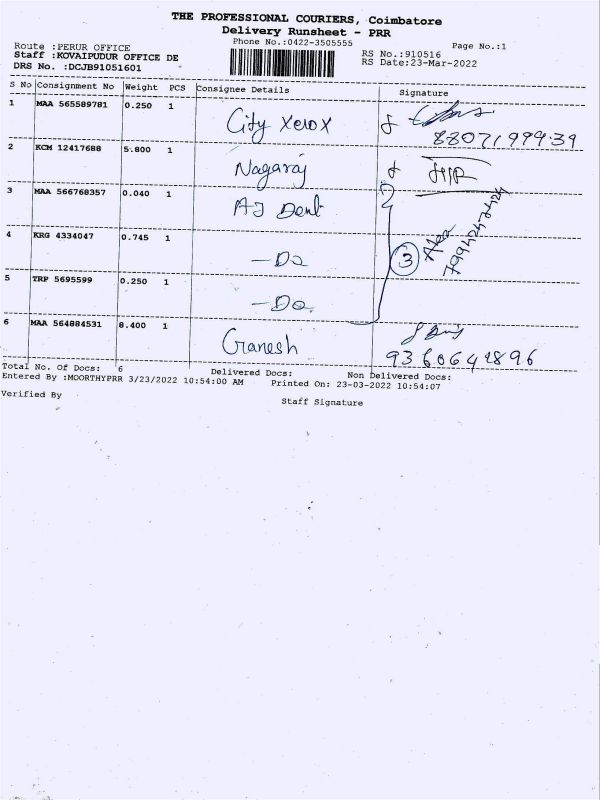 THE PROFESSIONAL COURIERS, Coimbatore
Delivery Runsheet - PRR
Phone No.:0422-3505555
Page No.:1
Route :PERUR OFFICE
RS No.:910516
Staff :KOVAIPUDUR OFFICE DE
RS Date:23-Mar-2022
DRS No. :DCJB91051601
S No Consignment No Weight PCS Consignee Details Signature
1 MAA 565589781 0.250 1 City Xerox
8807199939
2 KCM 12417688 5.800 1 Nagaraj
3 MAA 566768357 0.040 1 AJ Dent
4 KRG 4334047 0.745 1 -Do 3
5 TRP 5695599 0.250 1 -Do
6 MAA 564884531 8.400 1 Ganesh
9360641896
Total No. Of Docs: 6 Delivered Docs: Non Delivered Docs:
Entered By :MOORTHYPRR 3/23/2022 10:54:00 AM Printed On: 23-03-2022 10:54:07
Verified By
Staff Signature